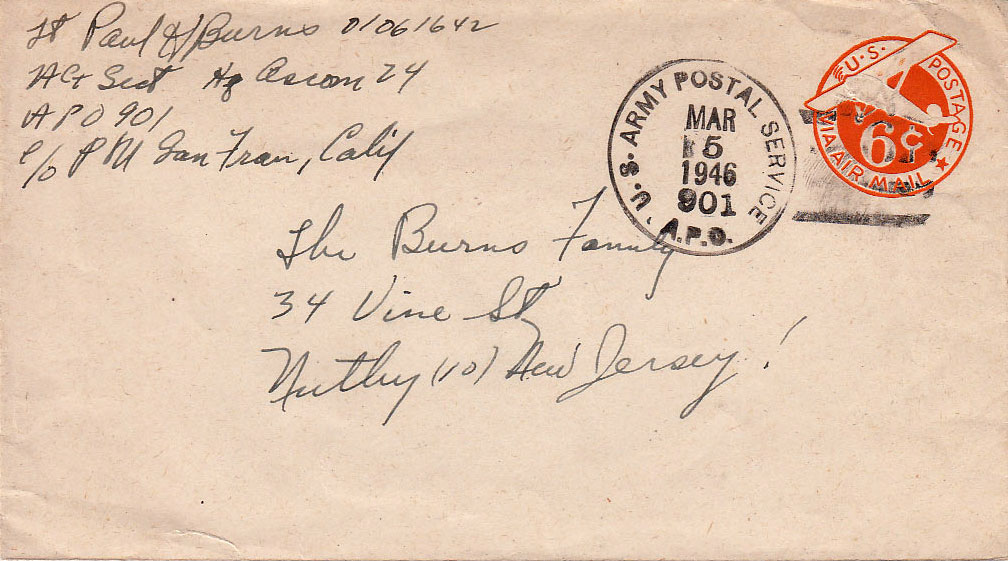 Lt Paul H Burns 01061642
Act Sect Hq Ascom 24
APO 901
c/o PM San Fran, Calif
U.S. ARMY POSTAL SERVICE
MAR
5
1946
901
A.P.O.
U.S. POSTAGE
6¢
VIA AIR MAIL
The Burns Family
34 Vine St
Nutley (10) New Jersey !